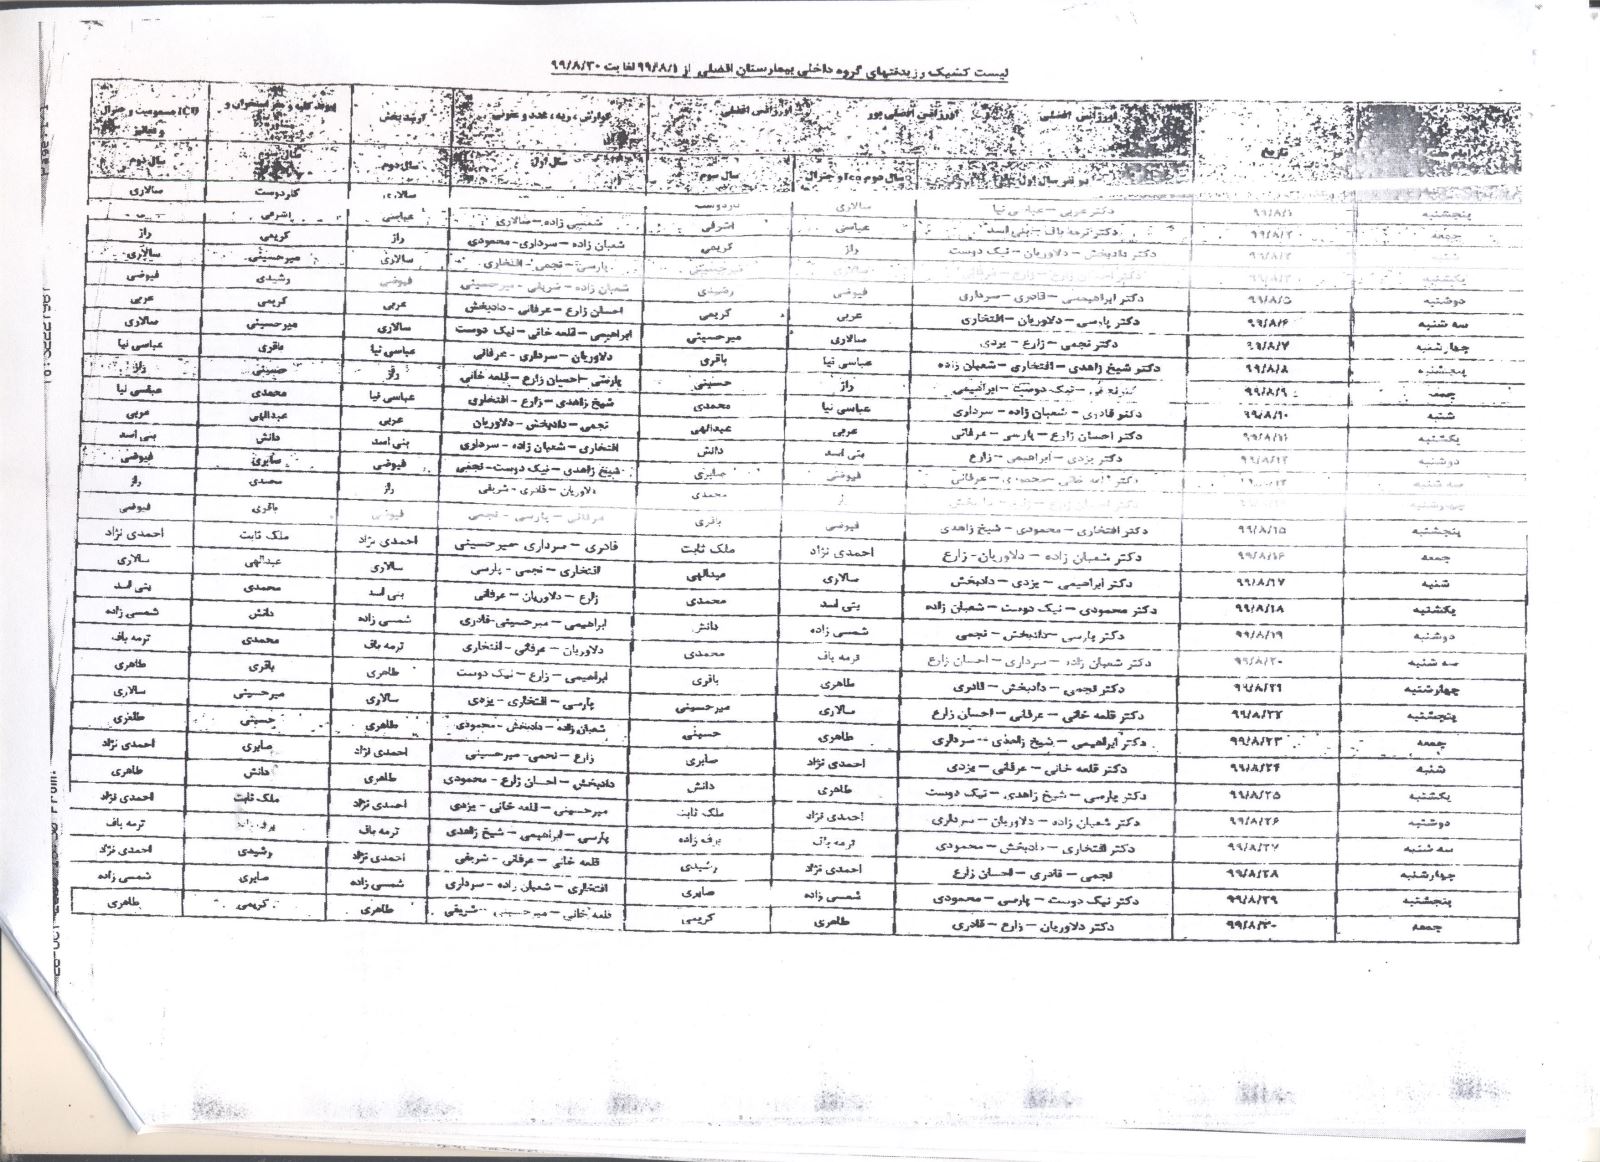 لیست کشیک رزیدنتهای گروه داخلی بیمارستان افضلی از ۹۹/۸/۱ لغایت ۹۹/۸/۳۰
تاریخ اورژانس افضلی اورژانس افضلی پور اورژانس افضلی گوارش، ریه، غدد و عفونی ارشد بخش ICU مسمومیت و جنرال
دو نفر سال اول سال دوم icu و جنرال سال سوم سال اول سال دوم سال دوم
پنجشنبه ۹۹/۸/۱ دکتر عربی – عباسی نیا سالاری کاردوست سالاری
جمعه ۹۹/۸/۲ دکتر ترمه باف – بنی اسد عباسی اشرفی شمسی زاده – سالاری عباسی اشرفی
دکتر دادبخش – دلاوریان – نیک دوست راز کریمی شعبان زاده – سرداری – محمودی راز کریمی راز
یکشنبه سالاری میرحسینی پارسی – نجمی – افتخاری سالاری میرحسینی سالاری
دوشنبه ۹۹/۸/۵ دکتر ابراهیمی – قادری – سرداری فیوضی رشیدی شعبان زاده – شریفی – میرحسینی فیوضی رشیدی فیوضی
سه شنبه ۹۹/۸/۶ دکتر پارسی – دلاوریان – افتخاری عربی کریمی احسان زارع – عرفانی – دادبخش عربی کریمی عربی
چهارشنبه ۹۹/۸/۷ دکتر نجمی – زارع – یزدی سالاری میرحسینی ابراهیمی – قلعه خانی – نیک دوست سالاری میرحسینی سالاری
پنجشنبه ۹۹/۸/۸ دکتر شیخ زاهدی – افتخاری – شعبان زاده عباسی نیا باقری دلاوریان – سرداری – عرفانی عباسی نیا باقری عباسی نیا
جمعه ۹۹/۸/۹ نیک دوست – ابراهیمی راز حسینی پارسی – احسان زارع – قلعه خانی راز حسینی راز
شنبه ۹۹/۸/۱۰ دکتر قادری – شعبان زاده – سرداری عباسی نیا محمدی شیخ زاهدی – زارع – افتخاری عباسی نیا محمدی عباسی نیا
یکشنبه ۹۹/۸/۱۱ دکتر احسان زارع – پارسی – عرفانی عربی عبدالهی نجمی – دادبخش – دلاوریان عربی عبدالهی عربی
دوشنبه ۹۹/۸/۱۲ دکتر یزدی – ابراهیمی – زارع بنی اسد دانش افتخاری – شعبان زاده – سرداری بنی اسد دانش بنی اسد
سه شنبه دکتر قلعه خانی – محمودی – عرفانی فیوضی صابری شیخ زاهدی – نیک دوست – نجمی فیوضی صابری فیوضی
محمدی دلاوریان – قادری – شریفی راز محمدی راز
پنجشنبه ۹۹/۸/۱۵ دکتر افتخاری – محمودی – شیخ زاهدی فیوضی باقری عرفانی – پارسی – نجمی فیوضی باقری فیوضی
جمعه ۹۹/۸/۱۶ دکتر شعبان زاده – دلاوریان – زارع احمدی نژاد ملک ثابت قادری – سرداری – میرحسینی احمدی نژاد ملک ثابت احمدی نژاد
شنبه ۹۹/۸/۱۷ دکتر ابراهیمی – یزدی – دادبخش سالاری عبدالهی افتخاری – نجمی – پارسی سالاری عبدالهی سالاری
یکشنبه ۹۹/۸/۱۸ دکتر محمودی – نیک دوست – شعبان زاده بنی اسد محمدی زارع – دلاوریان – عرفانی بنی اسد محمدی بنی اسد
دوشنبه ۹۹/۸/۱۹ دکتر پارسی – دادبخش – نجمی شمسی زاده دانش ابراهیمی – میرحسینی – قادری شمسی زاده دانش شمسی زاده
سه شنبه ۹۹/۸/۲۰ دکتر شعبان زاده – سرداری – احسان زارع ترمه باف محمدی دلاوریان – عرفانی – افتخاری ترمه باف محمدی ترمه باف
چهارشنبه ۹۹/۸/۲۱ دکتر نجمی – دادبخش – قادری طاهری باقری ابراهیمی – زارع – نیک دوست طاهری باقری طاهری
پنجشنبه ۹۹/۸/۲۲ دکتر قلعه خانی – عرفانی – احسان زارع سالاری میرحسینی پارسی – افتخاری – یزدی سالاری میرحسینی سالاری
جمعه ۹۹/۸/۲۳ دکتر ابراهیمی – شیخ زاهدی – سرداری طاهری حسینی شعبان زاده – دادبخش – محمودی طاهری حسینی طاهری
شنبه ۹۹/۸/۲۴ دکتر قلعه خانی – عرفانی – یزدی احمدی نژاد صابری زارع – نجمی – میرحسینی احمدی نژاد صابری احمدی نژاد
یکشنبه ۹۹/۸/۲۵ دکتر پارسی – شیخ زاهدی – نیک دوست طاهری دانش دادبخش – احسان زارع – محمودی طاهری دانش طاهری
دوشنبه ۹۹/۸/۲۶ دکتر شعبان زاده – دلاوریان – سرداری احمدی نژاد ملک ثابت میرحسینی – قلعه خانی – یزدی احمدی نژاد ملک ثابت احمدی نژاد
سه شنبه ۹۹/۸/۲۷ دکتر افتخاری – دادبخش – محمودی ترمه باف برف زاده پارسی – ابراهیمی – شیخ زاهدی ترمه باف برف زاده ترمه باف
چهارشنبه ۹۹/۸/۲۸ نجمی – قادری – احسان زارع احمدی نژاد رشیدی قلعه خانی – عرفانی – شریفی احمدی نژاد رشیدی احمدی نژاد
پنجشنبه ۹۹/۸/۲۹ دکتر نیک دوست – پارسی – محمودی شمسی زاده صابری افتخاری – شعبان زاده – سرداری شمسی زاده صابری شمسی زاده
جمعه ۹۹/۸/۳۰ دکتر دلاوریان – زارع – قادری طاهری کریمی قلعه خانی – میرحسینی – شریفی طاهری کریمی طاهری